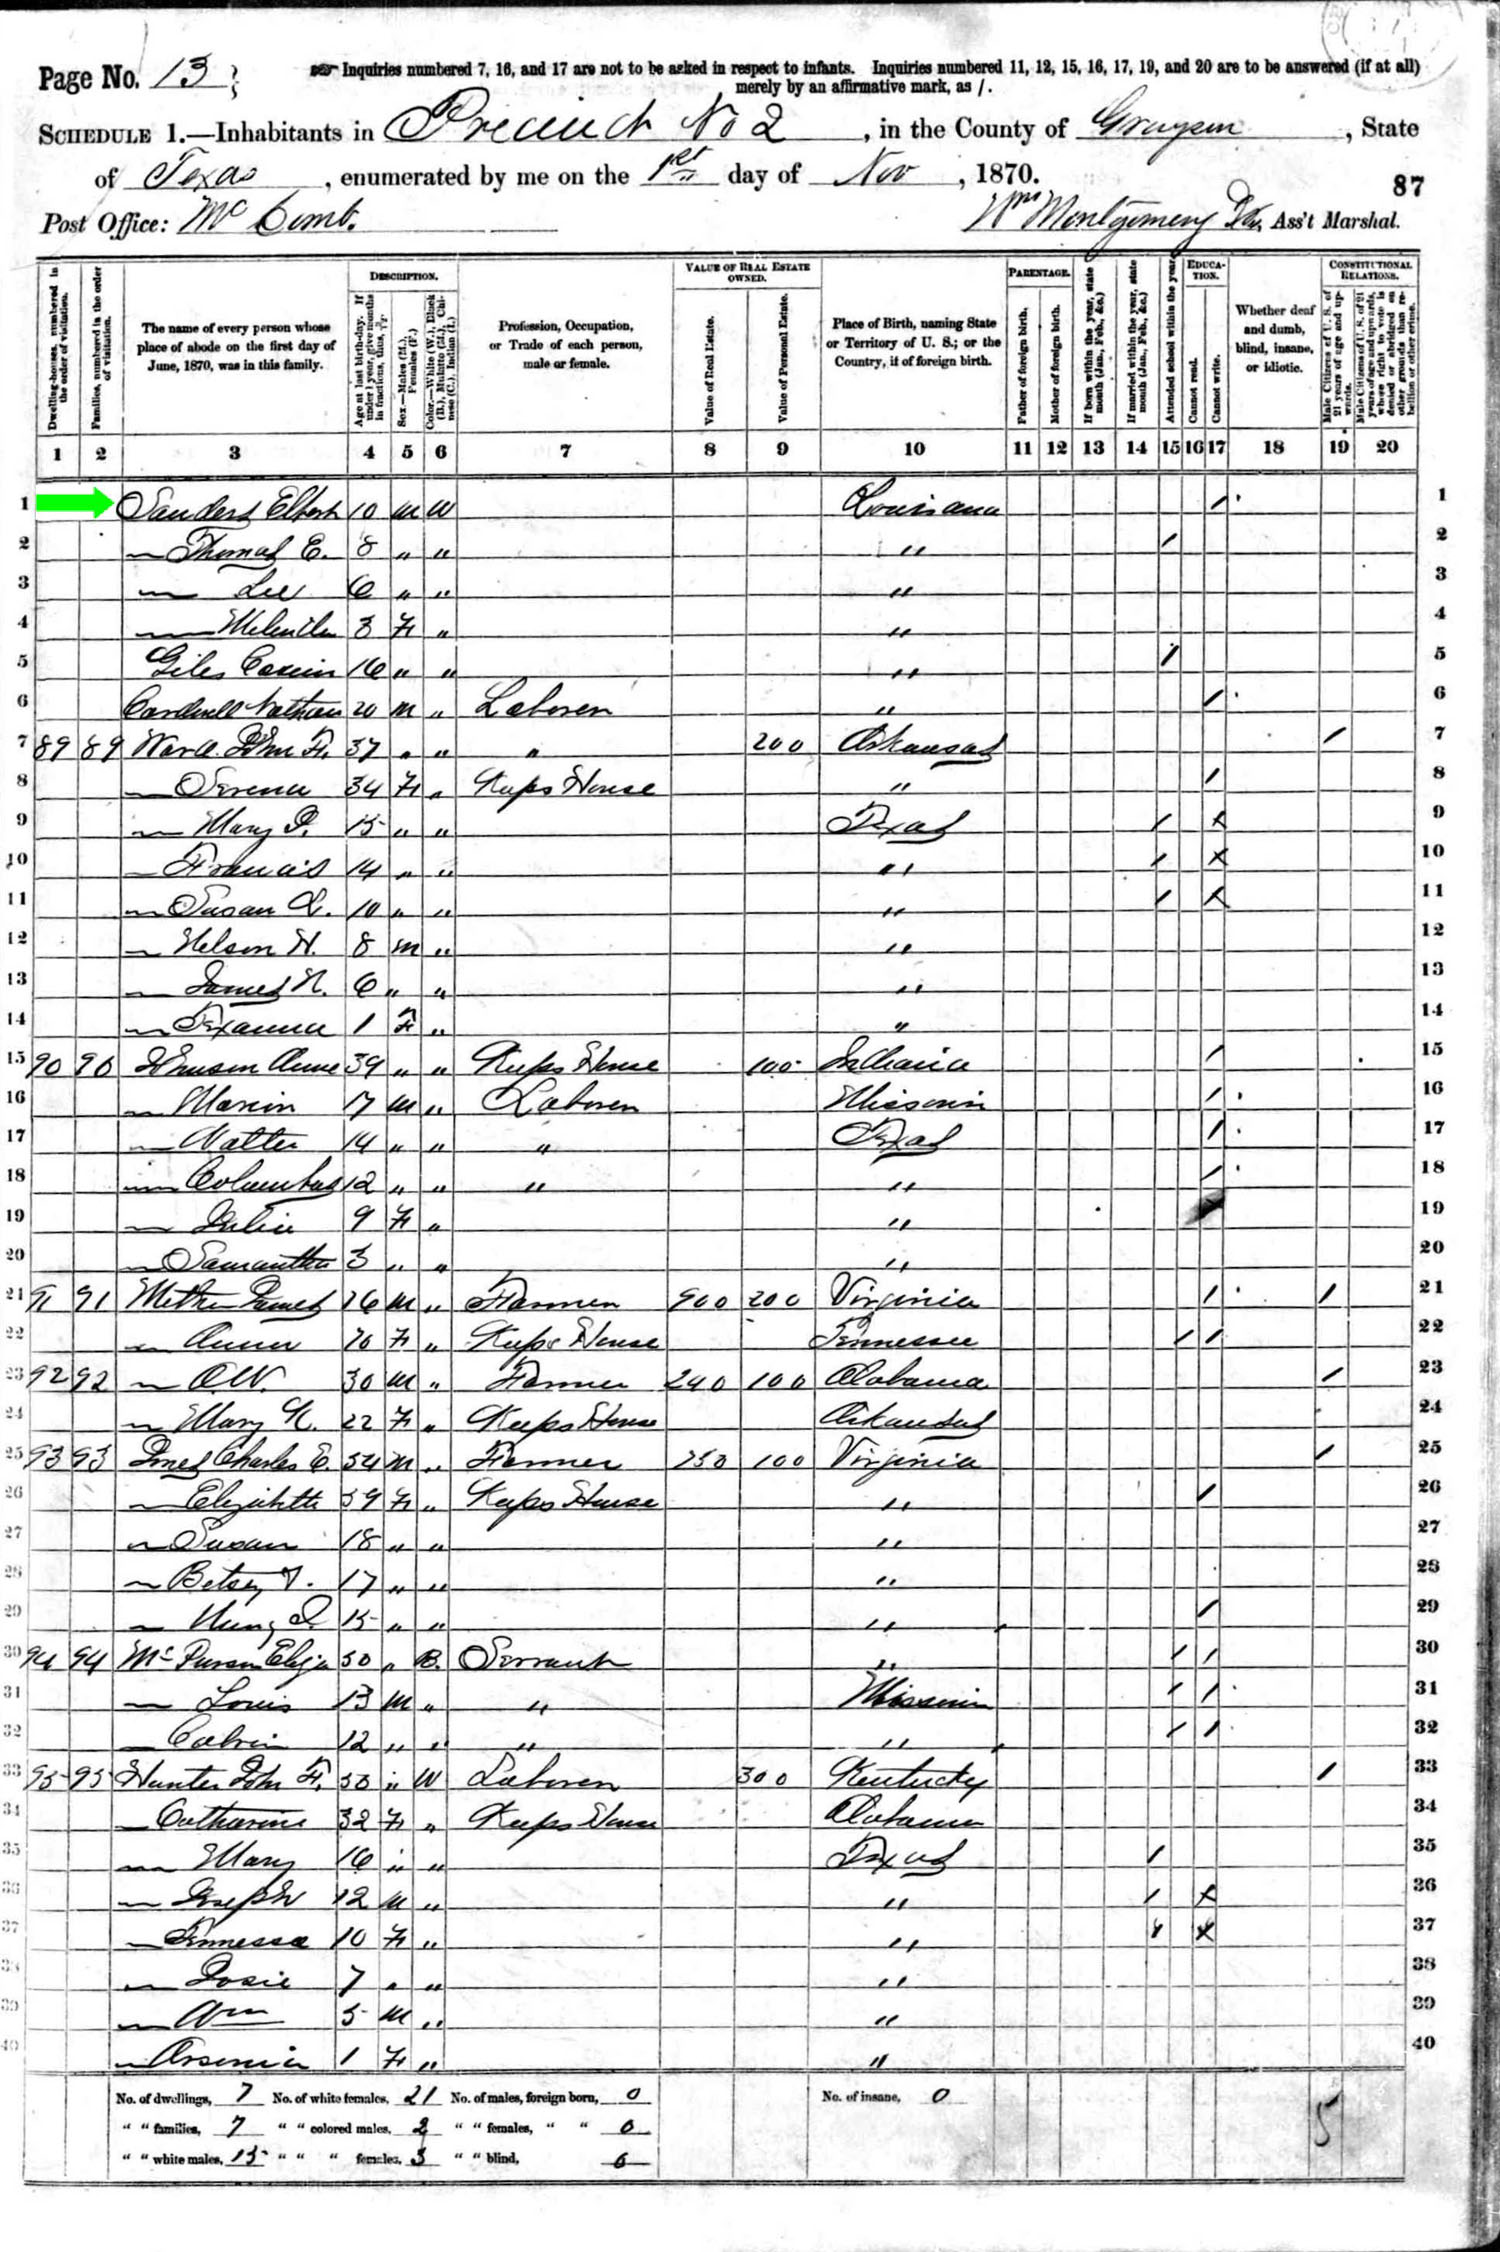 Page No. 13
Inquiries numbered 7, 16, and 17 are not to be asked in respect to infants. Inquiries numbered 11, 12, 15, 16, 17, 19, and 20 are to be answered (if at all)
merely by an affirmative mark, as /.
SCHEDULE 1.—Inhabitants in Precinct No 2, in the County of Grayson, State
of Texas, enumerated by me on the 1st day of Nov, 1870.
87
Post Office: McComb. Wm Montgomery Ass't Marshal.
Dwelling-houses, numbered in the order of visitation.
Families, numbered in the order of visitation.
The name of every person whose place of abode on the first day of June, 1870, was in this family.
DESCRIPTION.
Age at last birth-day. If under 1 year, give months in fractions, thus, 3/12
Sex.—Males (M.), Females (F.)
Color.—White (W.), Black (B.), Mulatto (M.), Chinese (C.), Indian (I.)
Profession, Occupation, or Trade of each person, male or female.
VALUE OF REAL ESTATE OWNED.
Value of Real Estate.
Value of Personal Estate.
Place of Birth, naming State or Territory of U. S.; or the Country, if of foreign birth.
PARENTAGE.
Father of foreign birth.
Mother of foreign birth.
If born within the year, state month (Jan., Feb., &c.)
If married within the year, state month (Jan., Feb., &c.)
Attended school within the year.
EDUCATION.
Cannot read.
Cannot write.
Whether deaf and dumb, blind, insane, or idiotic.
CONSTITUTIONAL RELATIONS.
Male Citizens of U. S. of 21 years of age and upwards.
Male Citizens of U. S. of 21 years of age and upwards, whose right to vote is denied or abridged on other grounds than rebellion or other crime.
1 2 3 4 5 6 7 8 9 10 11 12 13 14 15 16 17 18 19 20
1 Sanders Elbert 10 M W Louisiana / 1
2 — Thomas E. 8 " " " / 2
3 — Lee 6 " " " 3
4 — 3 F " " 4
5 Giles 16 " " " / 5
6 Nathan 20 M " Laborer " / 6
7 89 89 John F. 37 " " " 200 Arkansas / 7
8 — Serena 34 F " Keeps House " / 8
9 — Mary 15 " " Texas / x 9
10 — Francis 14 " " " / x 10
11 — Susan 10 " " " / x 11
12 — Nelson H. 8 M " " 12
13 — James N. 6 " " " 13
14 — Texanna 1 F " " 14
15 90 90 Johnson 39 " " Keeps House 100 Indiana / 15
16 — Marion 17 M " Laborer Missouri / 16
17 — Walter 14 " " " Texas / 17
18 — Columbus 12 " " " " / 18
19 — Julia 9 F " " 19
20 — Samantha 3 " " " 20
21 91 91 James 76 M " Farmer 900 200 Virginia / / 21
22 — 70 F " Keeps House Tennessee / / 22
23 92 92 — 30 M " Farmer 240 100 Alabama / 23
24 — Mary 22 F " Keeps House Arkansas 24
25 93 93 Charles E. 54 M " Farmer 250 100 Virginia / 25
26 — Elizabeth 39 F " Keeps House " / 26
27 — Susan 18 " " " 27
28 — Betsey 17 " " " 28
29 — 15 " " " / 29
30 94 94 50 " B. Servant " / / 30
31 — Louis 13 M " " Missouri / / 31
32 — Calvin 12 " " " " / / 32
33 95 95 Hunter John F. 53 " W Laborer 300 Kentucky / 33
34 — Catharine 32 F " Keeps House Alabama 34
35 — Mary 16 " " Texas / 35
36 — Joseph 12 M " " / x 36
37 — Tennessee 10 F " " / x 37
38 — Josie 7 " " " 38
39 — Wm 5 M " " 39
40 — Arsenia 1 F " " 40
No. of dwellings, 7 No. of white females, 21 No. of males, foreign born, 0 No. of insane, 0
" " families, 7 " " colored males, 2 " " females, " " 0
" " white males, 15 " " " females, 3 " " blind, 0
5